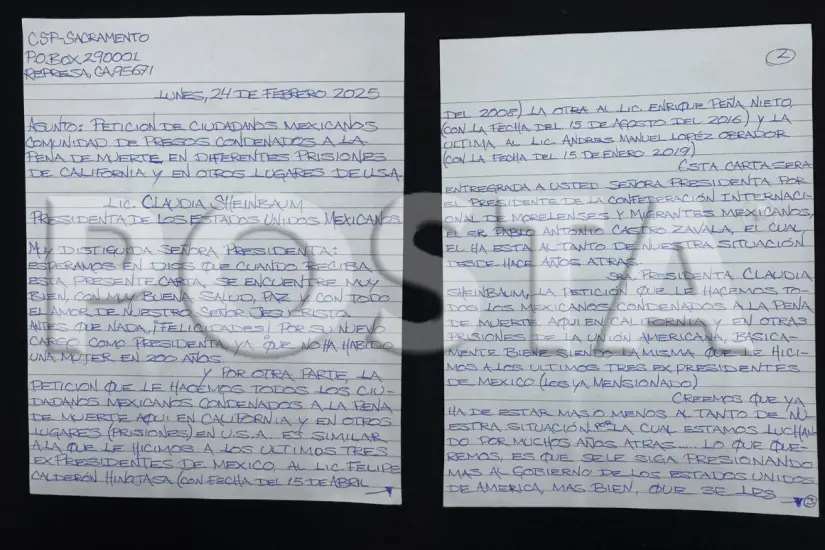 CSP-SACRAMENTO
P.O.BOX. 290001
REPRESA, CA. 95671
LUNES, 24 DE FEBRERO 2025
ASUNTO: PETICION DE CIUDADANOS MEXICANOS
COMUNIDAD DE PRESOS CONDENADOS A LA
PENA DE MUERTE EN DIFERENTES PRISIONES
DE CALIFORNIA Y EN OTROS LUGARES DE USA.
LIC. CLAUDIA SHEINBAUM
PRESIDENTA DE LOS ESTADOS UNIDOS MEXICANOS
MUY DISTIGUIDA SEÑORA PRESIDENTA:
ESPERAMOS EN DIOS QUE CUANDO RECIBA
ESTA PRESENTE CARTA, SE ENCUENTRE MUY
BIEN, CON MUY BUENA SALUD, PAZ Y CON TODO
EL AMOR DE NUESTRO SEÑOR JESUCRISTO.
ANTES QUE NADA, ¡FELICIDADES! POR SU NUEVO
CARGO COMO PRESIDENTA, YA QUE NO HA HABIDO
UNA MUJER EN 200 AÑOS.
Y POR OTRA PARTE, LA
PETICION QUE LE HACEMOS TODOS LOS CIU-
DADANOS MEXICANOS CONDENADOS A LA PENA
DE MUERTE AQUI EN CALIFORNIA Y EN OTROS
LUGARES (PRISIONES) EN U.S.A. ES SIMILAR
A LA QUE LE HICIMOS A LOS ULTIMOS TRES
EXPRESIDENTES DE MEXICO. AL LIC. FELIPE
CALDERÓN HINOJASA (CON FECHA DEL 15 DE ABRIL
2
DEL 2008) LA OTRA AL LIC. ENRIQUE PEÑA NIETO,
(CON LA FECHA DEL 15 DE AGOSTO DEL 2016) Y LA
ULTIMA AL LIC. ANDRES MANUEL LOPÉZ OBRADOR
(CON LA FECHA DEL 15 DE ENERO 2019)
ESTA CARTA SERA
ENTREGRADA A USTED SEÑORA PRESIDENTA POR
EL PRESIDENTE DE LA CONFEDERACIÓN INTERNACI-
ONAL DE MORELENSES Y MIGRANTES MEXICANOS,
EL SR. PABLO ANTONIO CASTRO ZAVALA, EL CUAL
EL HA ESTA AL TANTO DE NUESTRA SITUACIÓN
DESDE HACE AÑOS ATRAS.
SRA. PRESIDENTA CLAUDIA
SHEINBAUM, LA PETICIÓN QUE LE HACEMOS TO-
DOS LOS MEXICANOS CONDENADOS A LA PENA
DE MUERTE AQUI EN CALIFORNIA Y EN OTRAS
PRISIONES DE LA UNION AMERICANA, BASICA-
MENTE BIENE SIENDO LA MISMA QUE LE HICI-
MOS A LOS ULTIMOS TRES EXPRESIDENTES
DE MEXICO (LOS YA MENSIONADO)
CREEMOS QUE YA
HA DE ESTAR MAS O MENOS AL TANTO DE NU-
ESTRA SITUACIÓN POR LA CUAL ESTAMOS LUCHAN-
DO POR MUCHOS AÑOS ATRAS... LO QUE QUE-
REMOS, ES QUE SE LE SIGA PRESIONANDO
MAS AL GOBIERNO DE LOS ESTADOS UNIDOS
DE AMERICA, MAS BIEN, QUE SE LES
3
POSTA